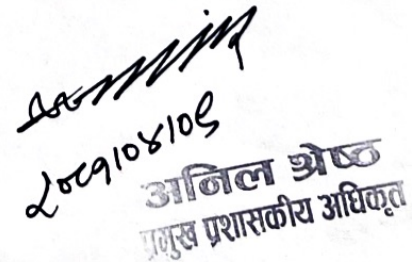 २०८१।०४।०९
अनिल श्रेष्ठ
प्रमुख प्रशासकीय अधिकृत